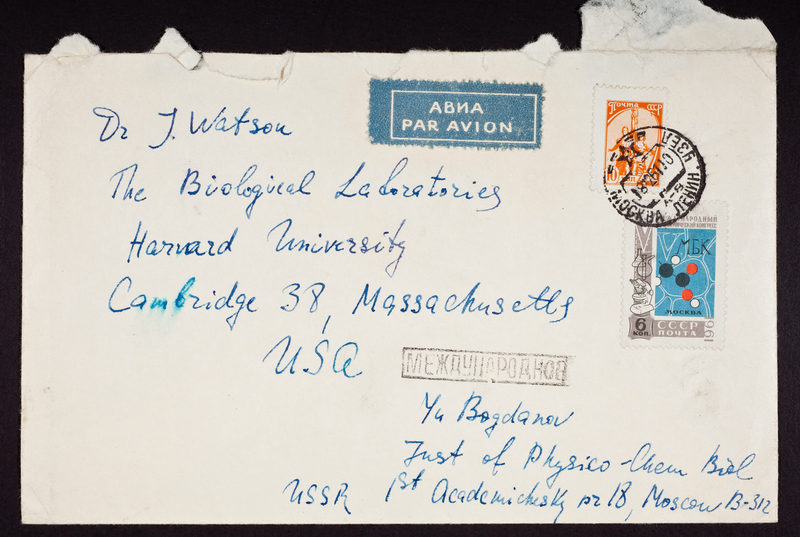 АВИА
PAR AVION
ПОЧТА СССР
10
МОСКВА
Dr J. Watson
The Biological Laboratories
Harvard University
Cambridge 38, Massachusetts
USA
МБК
МОСКВА
6
КОП.
СССР
ПОЧТА
196
МЕЖДУНАРОДНОЕ
Yu Bogdanov
Inst of Physico-Chem Biol
USSR 1st Academichesky pr 18, Moscow B-312